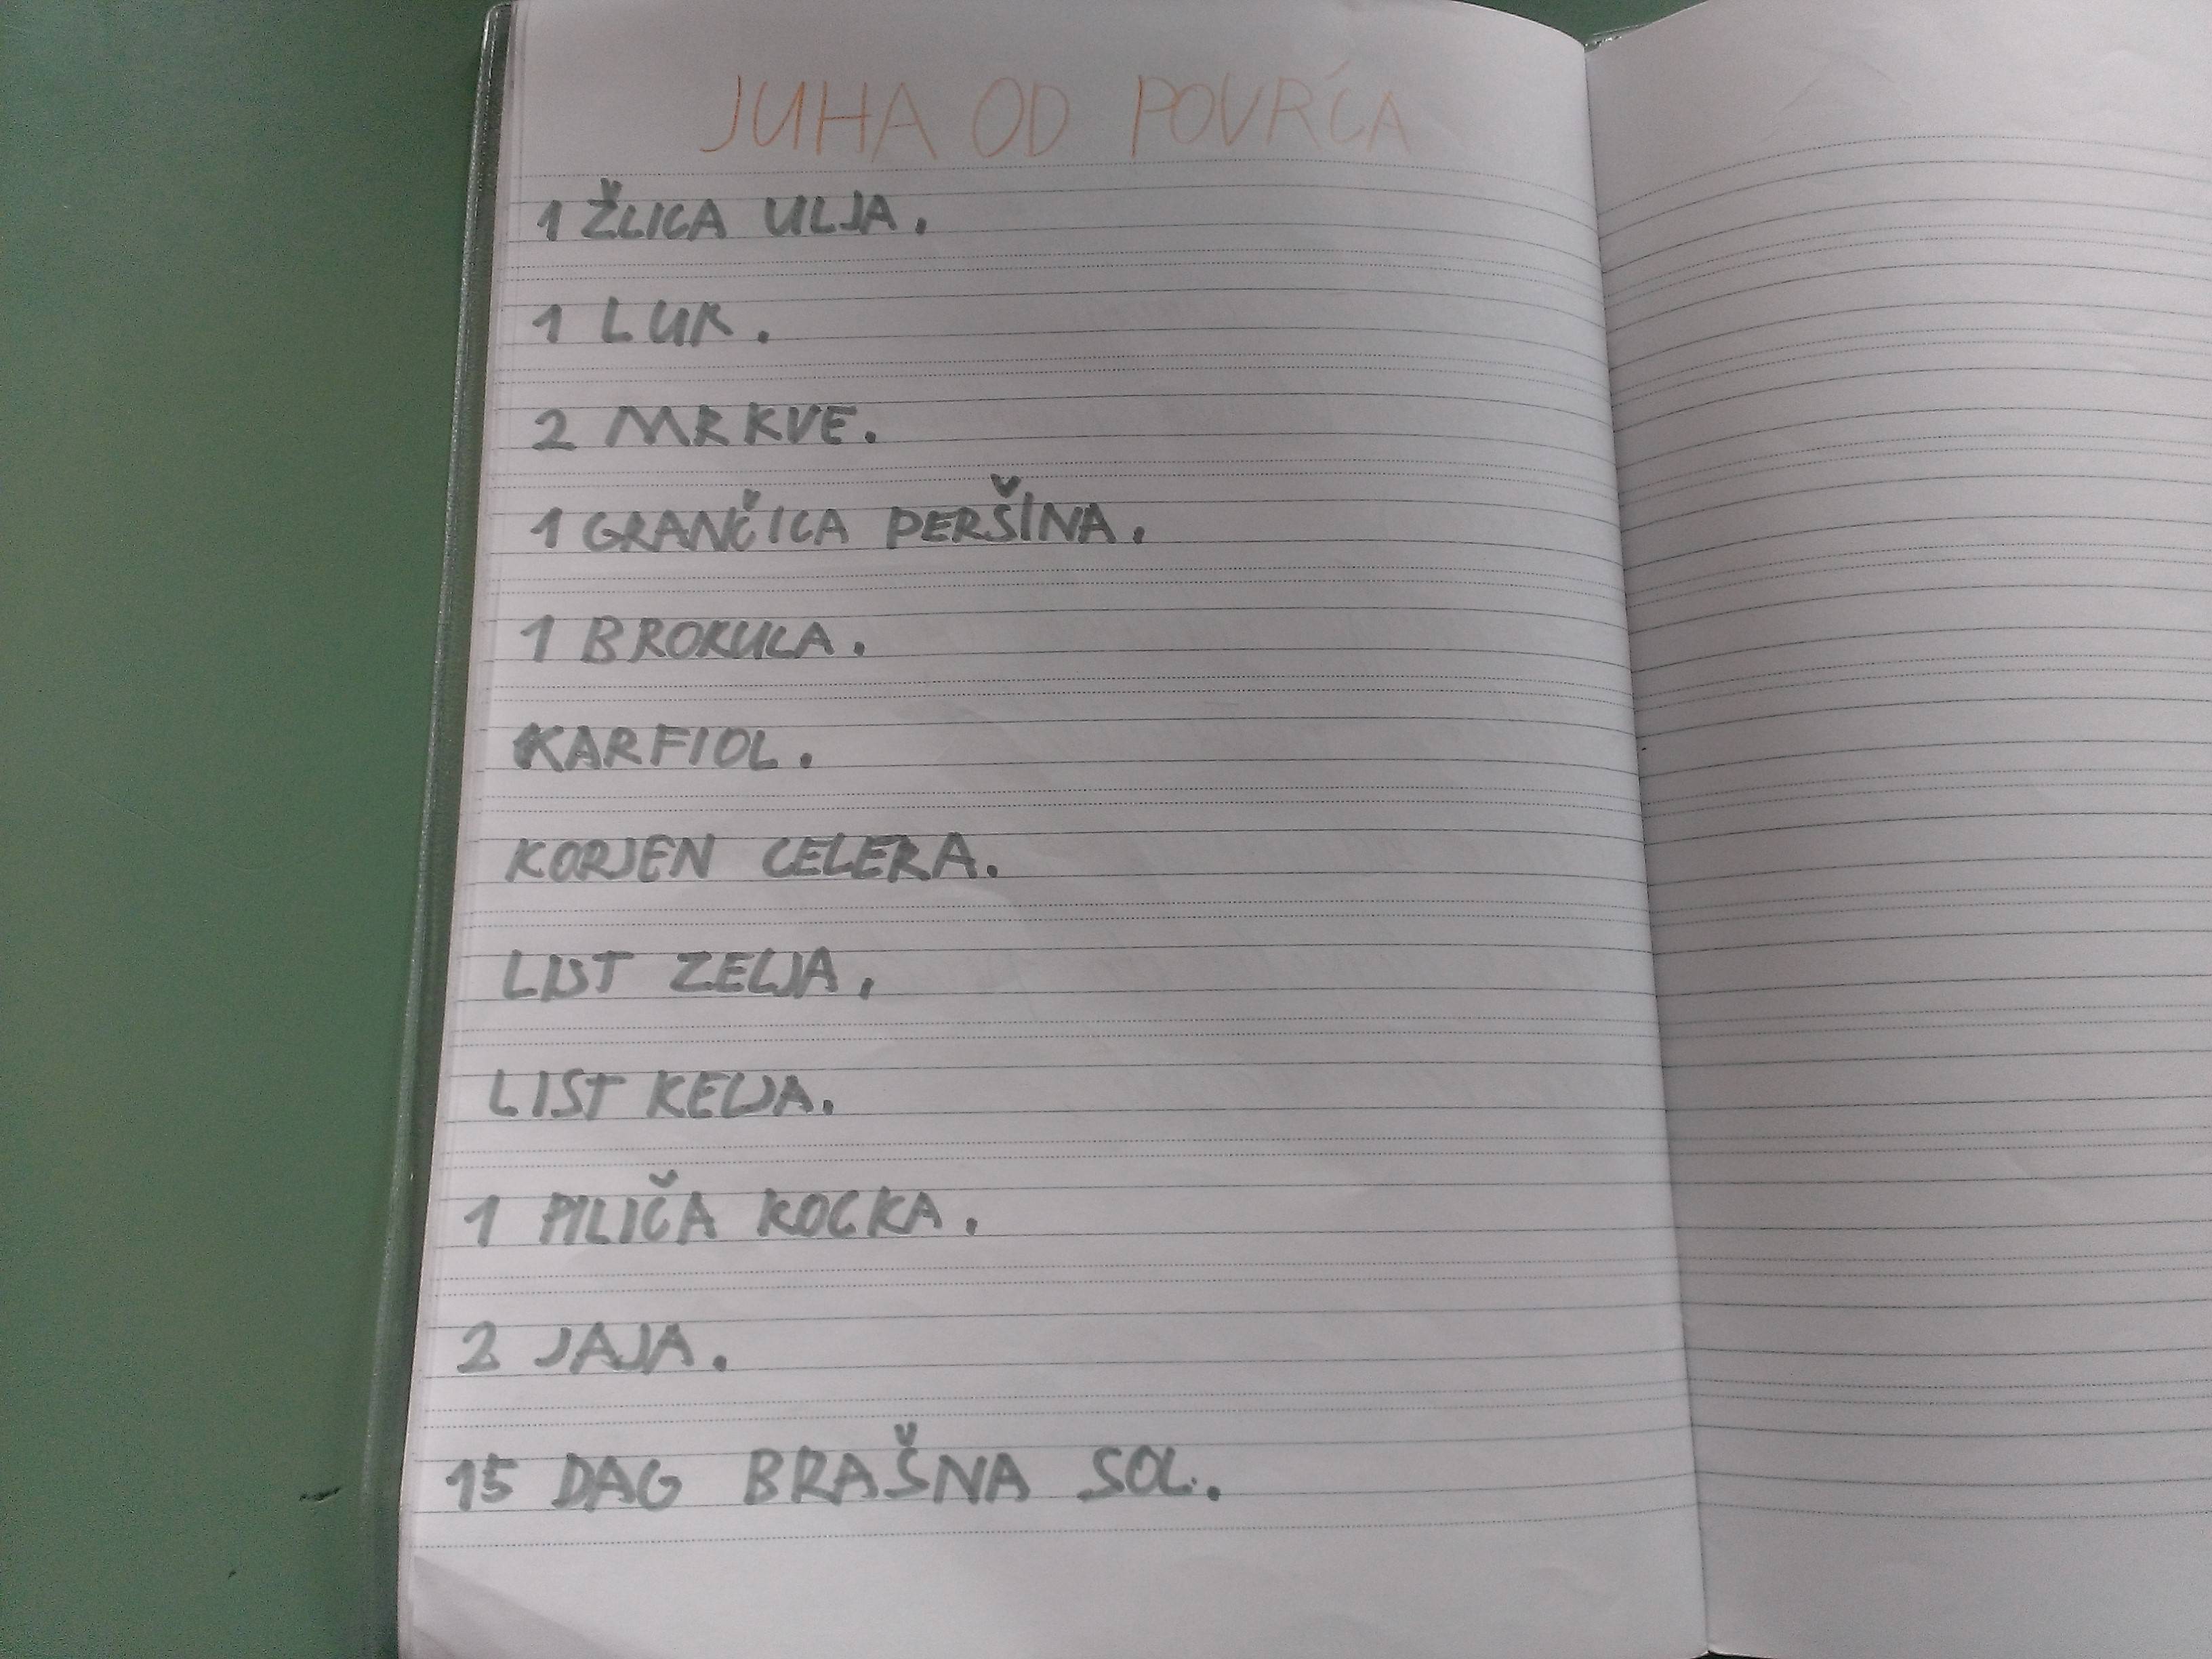 JUHA OD POVRĆA
1 ŽLICA ULJA.
1 LUK.
2 MRKVE.
1 GRANČICA PERŠINA.
1 BROKULA.
KARFIOL.
KORJEN CELERA.
LIST ZELJA.
LIST KELJA.
1 PILIČA KOCKA.
2 JAJA.
15 DAG BRAŠNA SOL.